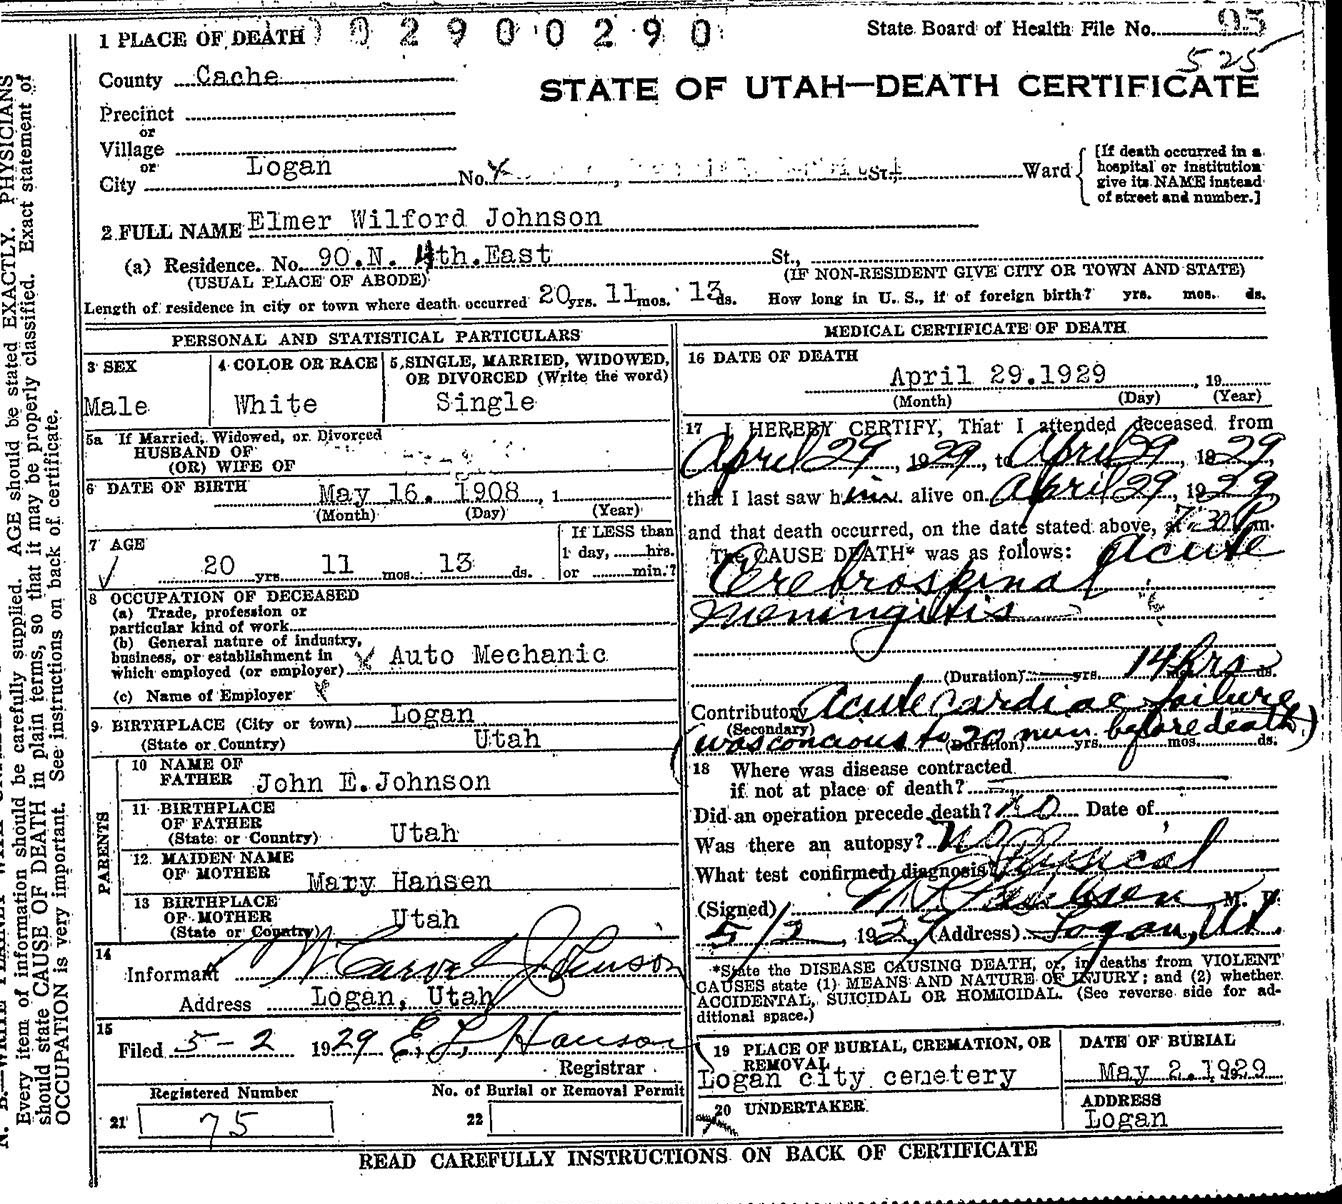 1 PLACE OF DEATH
0 2 9 0 0 2 9 0
State Board of Health File No. 95
525
County Cache
STATE OF UTAH—DEATH CERTIFICATE
Precinct
or
Village
or
City Logan No. St., Ward
[If death occurred in a hospital or institution give its NAME instead of street and number.]
2 FULL NAME Elmer Wilford Johnson
(a) Residence. No. 90.N. 4th.East St.,
(USUAL PLACE OF ABODE) (IF NON-RESIDENT GIVE CITY OR TOWN AND STATE)
Length of residence in city or town where death occurred 20 yrs. 11 mos. 13 ds. How long in U. S., if of foreign birth? yrs. mos. ds.
PERSONAL AND STATISTICAL PARTICULARS
3 SEX
Male
4 COLOR OR RACE
White
5 SINGLE, MARRIED, WIDOWED,
OR DIVORCED (Write the word)
Single
5a If Married, Widowed, or Divorced
HUSBAND OF
(OR) WIFE OF
6 DATE OF BIRTH May 16. 1908 , 1
(Month) (Day) (Year)
7 AGE
20 yrs. 11 mos. 13 ds.
If LESS than
1 day, hrs.
or min.?
8 OCCUPATION OF DECEASED
(a) Trade, profession or
particular kind of work
(b) General nature of industry,
business, or establishment in
which employed (or employer) Auto Mechanic
(c) Name of Employer
9 BIRTHPLACE (City or town) Logan
(State or Country) Utah
PARENTS
10 NAME OF
FATHER John E.Johnson
11 BIRTHPLACE
OF FATHER
(State or Country) Utah
12 MAIDEN NAME
OF MOTHER Mary Hansen
13 BIRTHPLACE
OF MOTHER
(State or Country) Utah
14
Informant W Carvel Johnson
Address Logan, Utah
15
Filed 5-2 1929 E. L. Hanson
Registrar
Registered Number
21 75
No. of Burial or Removal Permit
22
MEDICAL CERTIFICATE OF DEATH
16 DATE OF DEATH
April 29.1929 , 19
(Month) (Day) (Year)
17 I HEREBY CERTIFY, That I attended deceased from
April 29, 1929, to April 29, 1929,
that I last saw him alive on April 29, 1929
and that death occurred, on the date stated above, at 7:30 P m.
The CAUSE DEATH* was as follows: Acute
Cerebrospinal
Meningitis
(Duration) yrs. 14 hrs ds.
Contributory Acute cardiac failure
(Secondary)
(was concious to 20 min. before death)
(Duration) yrs. mos. ds.
18 Where was disease contracted
if not at place of death?
Did an operation precede death? no Date of
Was there an autopsy? no
What test confirmed diagnosis? Physical
(Signed) M. D.
5/2, 1929 (Address) Logan, Ut.
*State the DISEASE CAUSING DEATH, or, in deaths from VIOLENT
CAUSES state (1) MEANS AND NATURE OF INJURY; and (2) whether
ACCIDENTAL, SUICIDAL OR HOMICIDAL. (See reverse side for ad-
ditional space.)
19 PLACE OF BURIAL, CREMATION, OR
REMOVAL
Logan city cemetery
DATE OF BURIAL
May 2.1929
20 UNDERTAKER
ADDRESS
Logan
READ CAREFULLY INSTRUCTIONS ON BACK OF CERTIFICATE
Every item of information should be carefully supplied. AGE should be stated EXACTLY. PHYSICIANS
should state CAUSE OF DEATH in plain terms, so that it may be properly classified. Exact statement of
OCCUPATION is very important. See instructions on back of certificate.